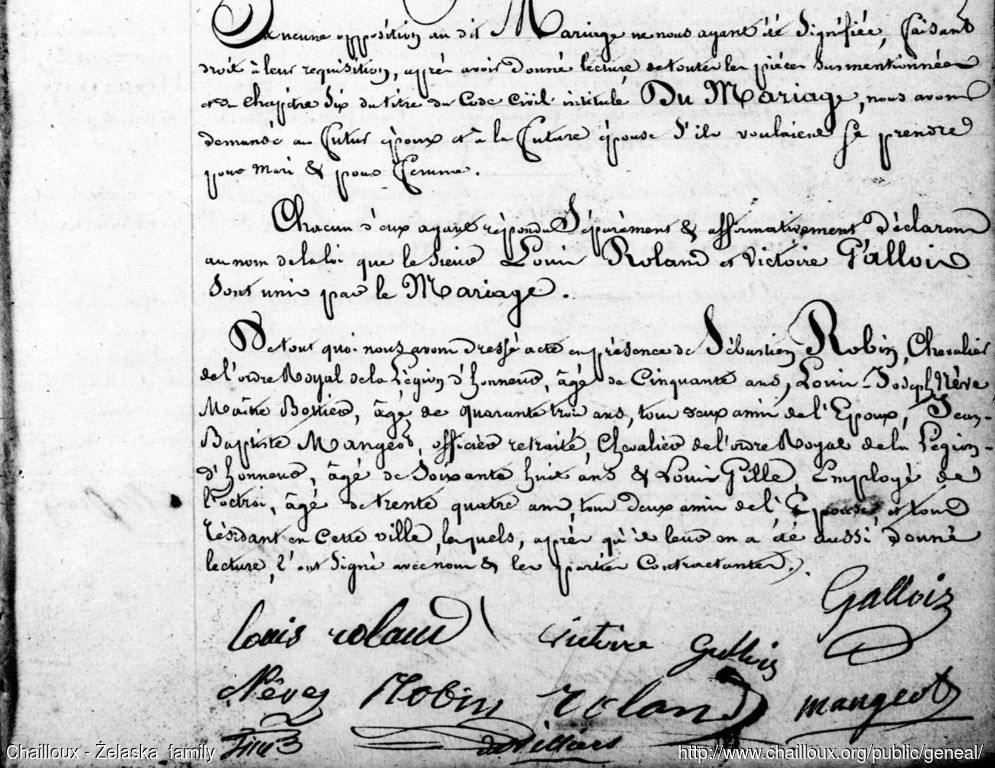 Aucune opposition au dit Mariage ne nous ayant été Signifiée, faisant
droit à leur requisition, après avoir donné lecture de toutes les pièces Susmentionnées
et du Chapitre Six du titre du Code Civil intitulé Du Mariage, nous avons
demandé au futur époux et à la future épouse S'ils voulaient Se prendre
pour Mari & pour femme.
Chacun d'eux ayant répondu Séparément & affirmativement déclarons
au nom de la loi que le Sieur Louis Roland et Victoire Gallois
Sont unis par le Mariage.
De tout quoi nous avons dressé acte en présence de Sébastien Robin, Chevalier
de l'ordre Royal de la Légion d'honneur, âgé de Cinquante ans, Louis-Joseph Nève
Maître Bottier, âgé de quarante trois ans, tous deux amis de l'Epoux, Jean-
Baptiste Mangeot, officier retraité, Chevalier de l'ordre Royal de la Légion-
d'honneur, âgé de Soixante huit ans & Louis Gille, Employé de
l'octroi, âgé de trente quatre ans, tous deux amis de l'Epouse et tous
résidant en Cette ville, lesquels, après qu'il leur en a été aussi donné
lecture, l'ont Signé avec nous & les parties Contractantes.
Gallois
Louis roland victoire Gallois
Nève Robin Roland mangeot
devilliers
Chailloux - Żelaska family http://www.chailloux.org/public/geneal/